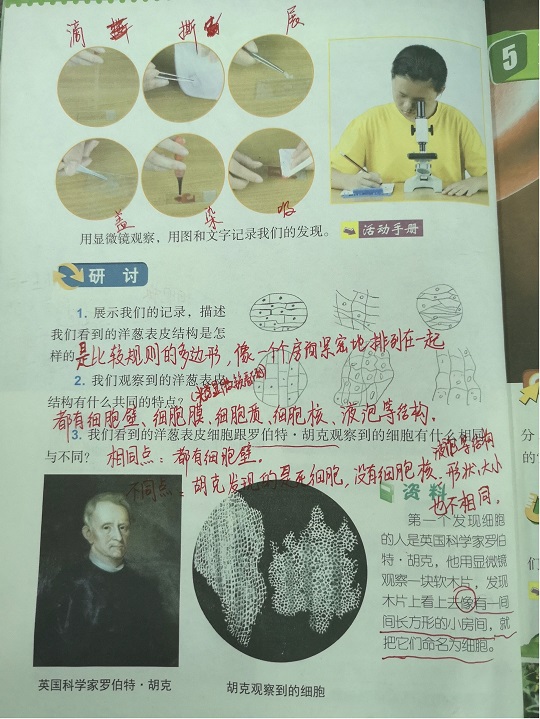 滴 撕 展
5
盖 染 吸
用显微镜观察，用图和文字记录我们的发现。
活动手册
研讨
1. 展示我们的记录，描述
我们看到的洋葱表皮结构是怎
样的 是比较规则的多边形，像一个个房间紧密地排列在一起
2. 我们观察到的洋葱表皮
结构有什么共同的特点？
都有细胞壁、细胞膜、细胞质、细胞核、液泡等结构.
3. 我们看到的洋葱表皮细胞跟罗伯特·胡克观察到的细胞有什么相同
与不同？ 相同点：都有细胞壁.
不同点：胡克发现的是死细胞，没有细胞核、液泡等结构
形状、大小
也不相同.
资料
第一个发现细胞
的人是英国科学家罗伯
特·胡克，他用显微镜
观察一块软木片，发现
木片上看上去像有一间
间长方形的小房间，就
把它们命名为细胞。
英国科学家罗伯特·胡克
胡克观察到的细胞
分
的
们